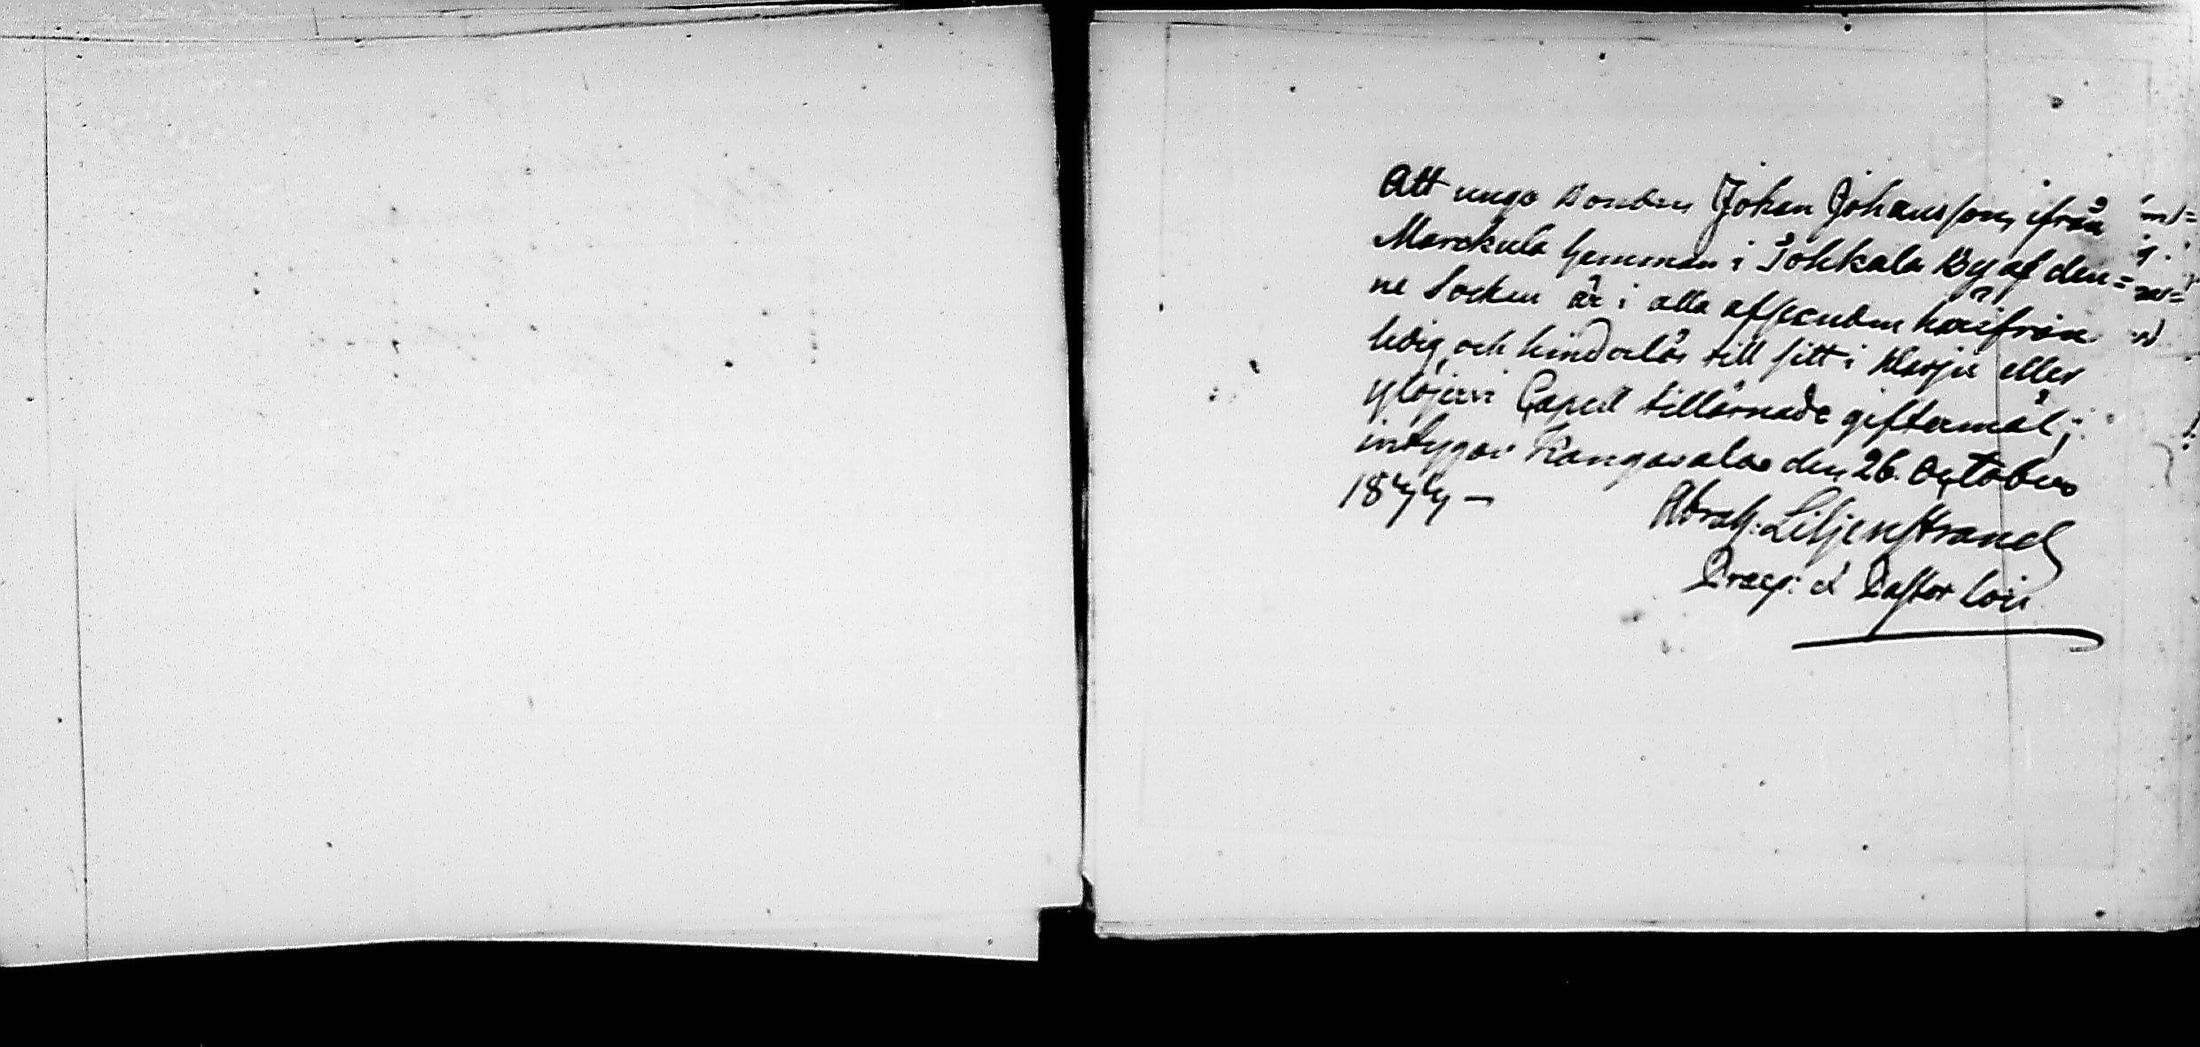 Att unge Bonden Johan Johansson, ifrån
Marckula hemman i Tohkala By af den=
ne Socken är i alla afseenden härifrån
ledig och hinderlös till sitt i Karju eller
Ylöjervi Capell tillärnade giftermål;
intygar Kangasala den 26. October
1844 —
Abrah. Liljenstrand
Præp. & Pastor loci